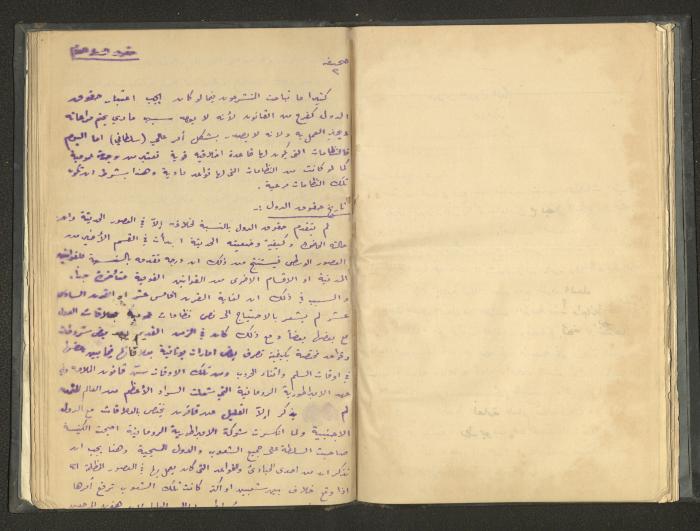 حقوق الدول العامة
صحيفة
٢
كثيرا ما تباحث المتشرعون فيما لو كان يجب اعتبار حقوق
الدول كفرع من القانون لأنه لا يوجد سبب مادي يحتم مراعاته
العمل به ولأنه لا يصدر بشكل أمر علمي (سلطاني) اما اليوم
فالنظامات التي تكون لها قاعدة اخلاقية قوية تعتبر من وجهة
كما لو كانت من النظامات التي لها قواعد مادية وهذا بشرط ان تكون
تلك النظامات مرعية .
تاريخ حقوق الدول :-
لم يتقدم حقوق الدول بالنسبة لخلافه إلا في العصور الحديثة وان
حالته وكيفية وضعيته الحديثة ابتدأت في القسم الأخير من
العصور الوسطى فيستنتج من ذلك ان درجة تقدمه بالنسبة للقوانين
المدنية او الاقسام الاخرى من القوانين القومية متأخرة جدا
والسبب في ذلك ان لغاية القرن الخامس عشر او القرن السادس
عشر لم يشعر بالاحتياج الى نص نظامات بعلاقات الدول
مع بعضها بعضا ومع ذلك كان في الزمن القديم بعض
وقواعد مختصة بكيفية تصرف بعض امارات يونانية بعلاقاتها فيما بين بعضها
في اوقات السلم واثناء الحرب ومن تلك الاوقات قانون
الامبراطورية الرومانية التي شملت السواد الأعظم من العالم
لم يذكر إلا القليل عن قانون يختص بالعلاقات مع الدول
الاجنبية ولما انكسرت شوكة الامبراطورية الرومانية اصبحت الكنيسة
صاحبة السلطة على جميع الشعوب والدول المسيحية وهنا يجب ان
نتذكر ان من احدى المبادئ والقواعد التي كان يعمل بها في العصور المظلة انه
اذا وقع خلاف بين شعبين او اكثر كانت تلك الشعوب ترفع أمرها